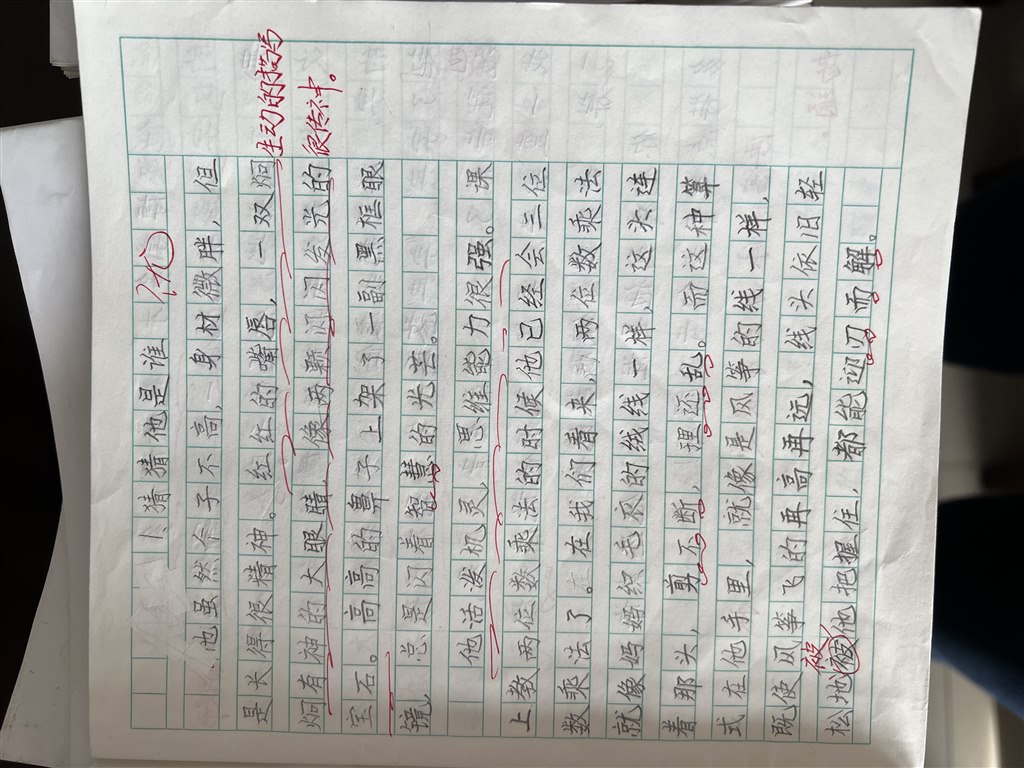 小猜猜他是谁
优
他虽然个子不高，身材微胖，但
是长得很精神。红红的嘴唇，一双炯
生动的描写
炯有神的大眼睛，像两颗闪闪发光的
很传神。
宝石。高高的鼻子上架了一副黑框眼
镜，总是闪着智慧的光芒。
他活泼机灵，思维能力很强。课
上教两位数乘法的时候他已经会三位
数乘法了。在我们看来，两位数乘法
就像妈妈织毛衣的绒线一样，这头连
着那头，剪不断，理还乱。而这种算
式在他手里，就像是风筝的线一样，
既使风筝飞的再高再远，线头依旧轻
被
松地被他把握住，都能迎刃而解。